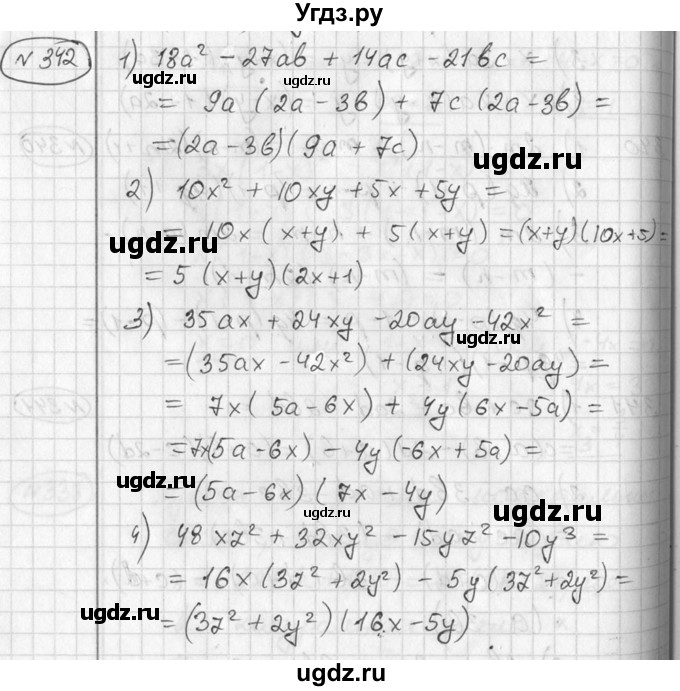 Угдз.ру
№ 342
1) 18a² - 27ab + 14ac - 21bc =
= 9a (2a - 3b) + 7c (2a - 3b) =
= (2a - 3b) (9a + 7c)
2) 10x² + 10xy + 5x + 5y =
= 10x (x+y) + 5 (x+y) = (x+y) (10x+5) =
= 5 (x+y) (2x+1)
3) 35ax + 24xy - 20ay - 42x² =
= (35ax - 42x²) + (24xy - 20ay) =
= 7x (5a - 6x) + 4y (6x - 5a) =
= 7x(5a - 6x) - 4y (-6x + 5a) =
= (5a - 6x) (7x - 4y)
4) 48xz² + 32xy² - 15yz² - 10y³ =
= 16x (3z² + 2y²) - 5y (3z² + 2y²) =
= (3z² + 2y²) (16x - 5y)
ugdz.ru
ugdz.ru
ugdz.ru
ugdz.ru
ugdz.ru
ugdz.ru
ugdz.ru
ugdz.ru
ugdz.ru
ugdz.ru
ugdz.ru